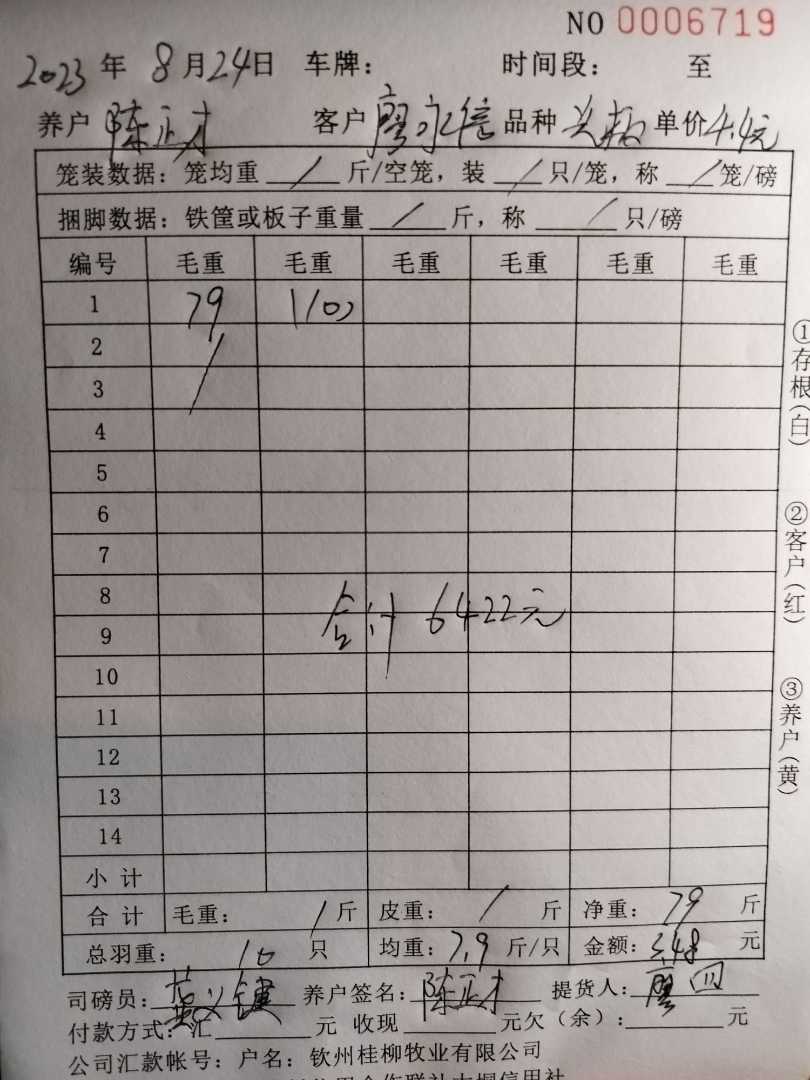 NO 0006719
2023 年 8 月 24 日 车牌： 时间段： 至
养户 陈正才 客户 廖永信 品种 单价 4.4元
笼装数据：笼均重 / 斤/空笼，装 / 只/笼，称 / 笼/磅
捆脚数据：铁筐或板子重量 / 斤，称 / 只/磅
编号 毛重 毛重 毛重 毛重 毛重 毛重
1 79 1/0)
2 /
3
4
5
6
7
8
合计 6422元
9
10
11
12
13
14
小计
合计 毛重： / 斤 皮重： / 斤 净重： 79 斤
总羽重： 10 只 均重： 7.9 斤/只 金额： 348 元
司磅员： 养户签名： 陈正才 提货人： 廖四
付款方式：汇 元 收现 元欠（余）： 元
公司汇款帐号：户名：钦州桂柳牧业有限公司
①存根（白）
②客户（红）
③养户（黄）